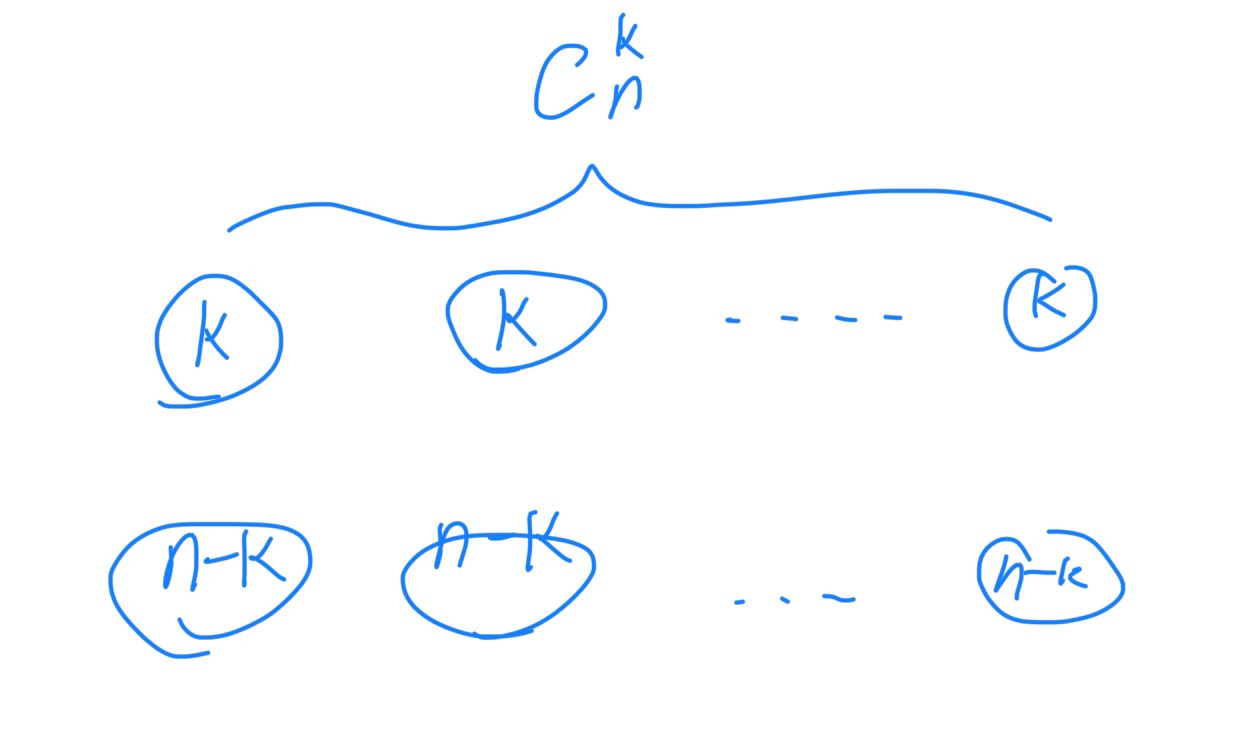 C_n^k
k k - - - - k
n-k n-k - - - n-k